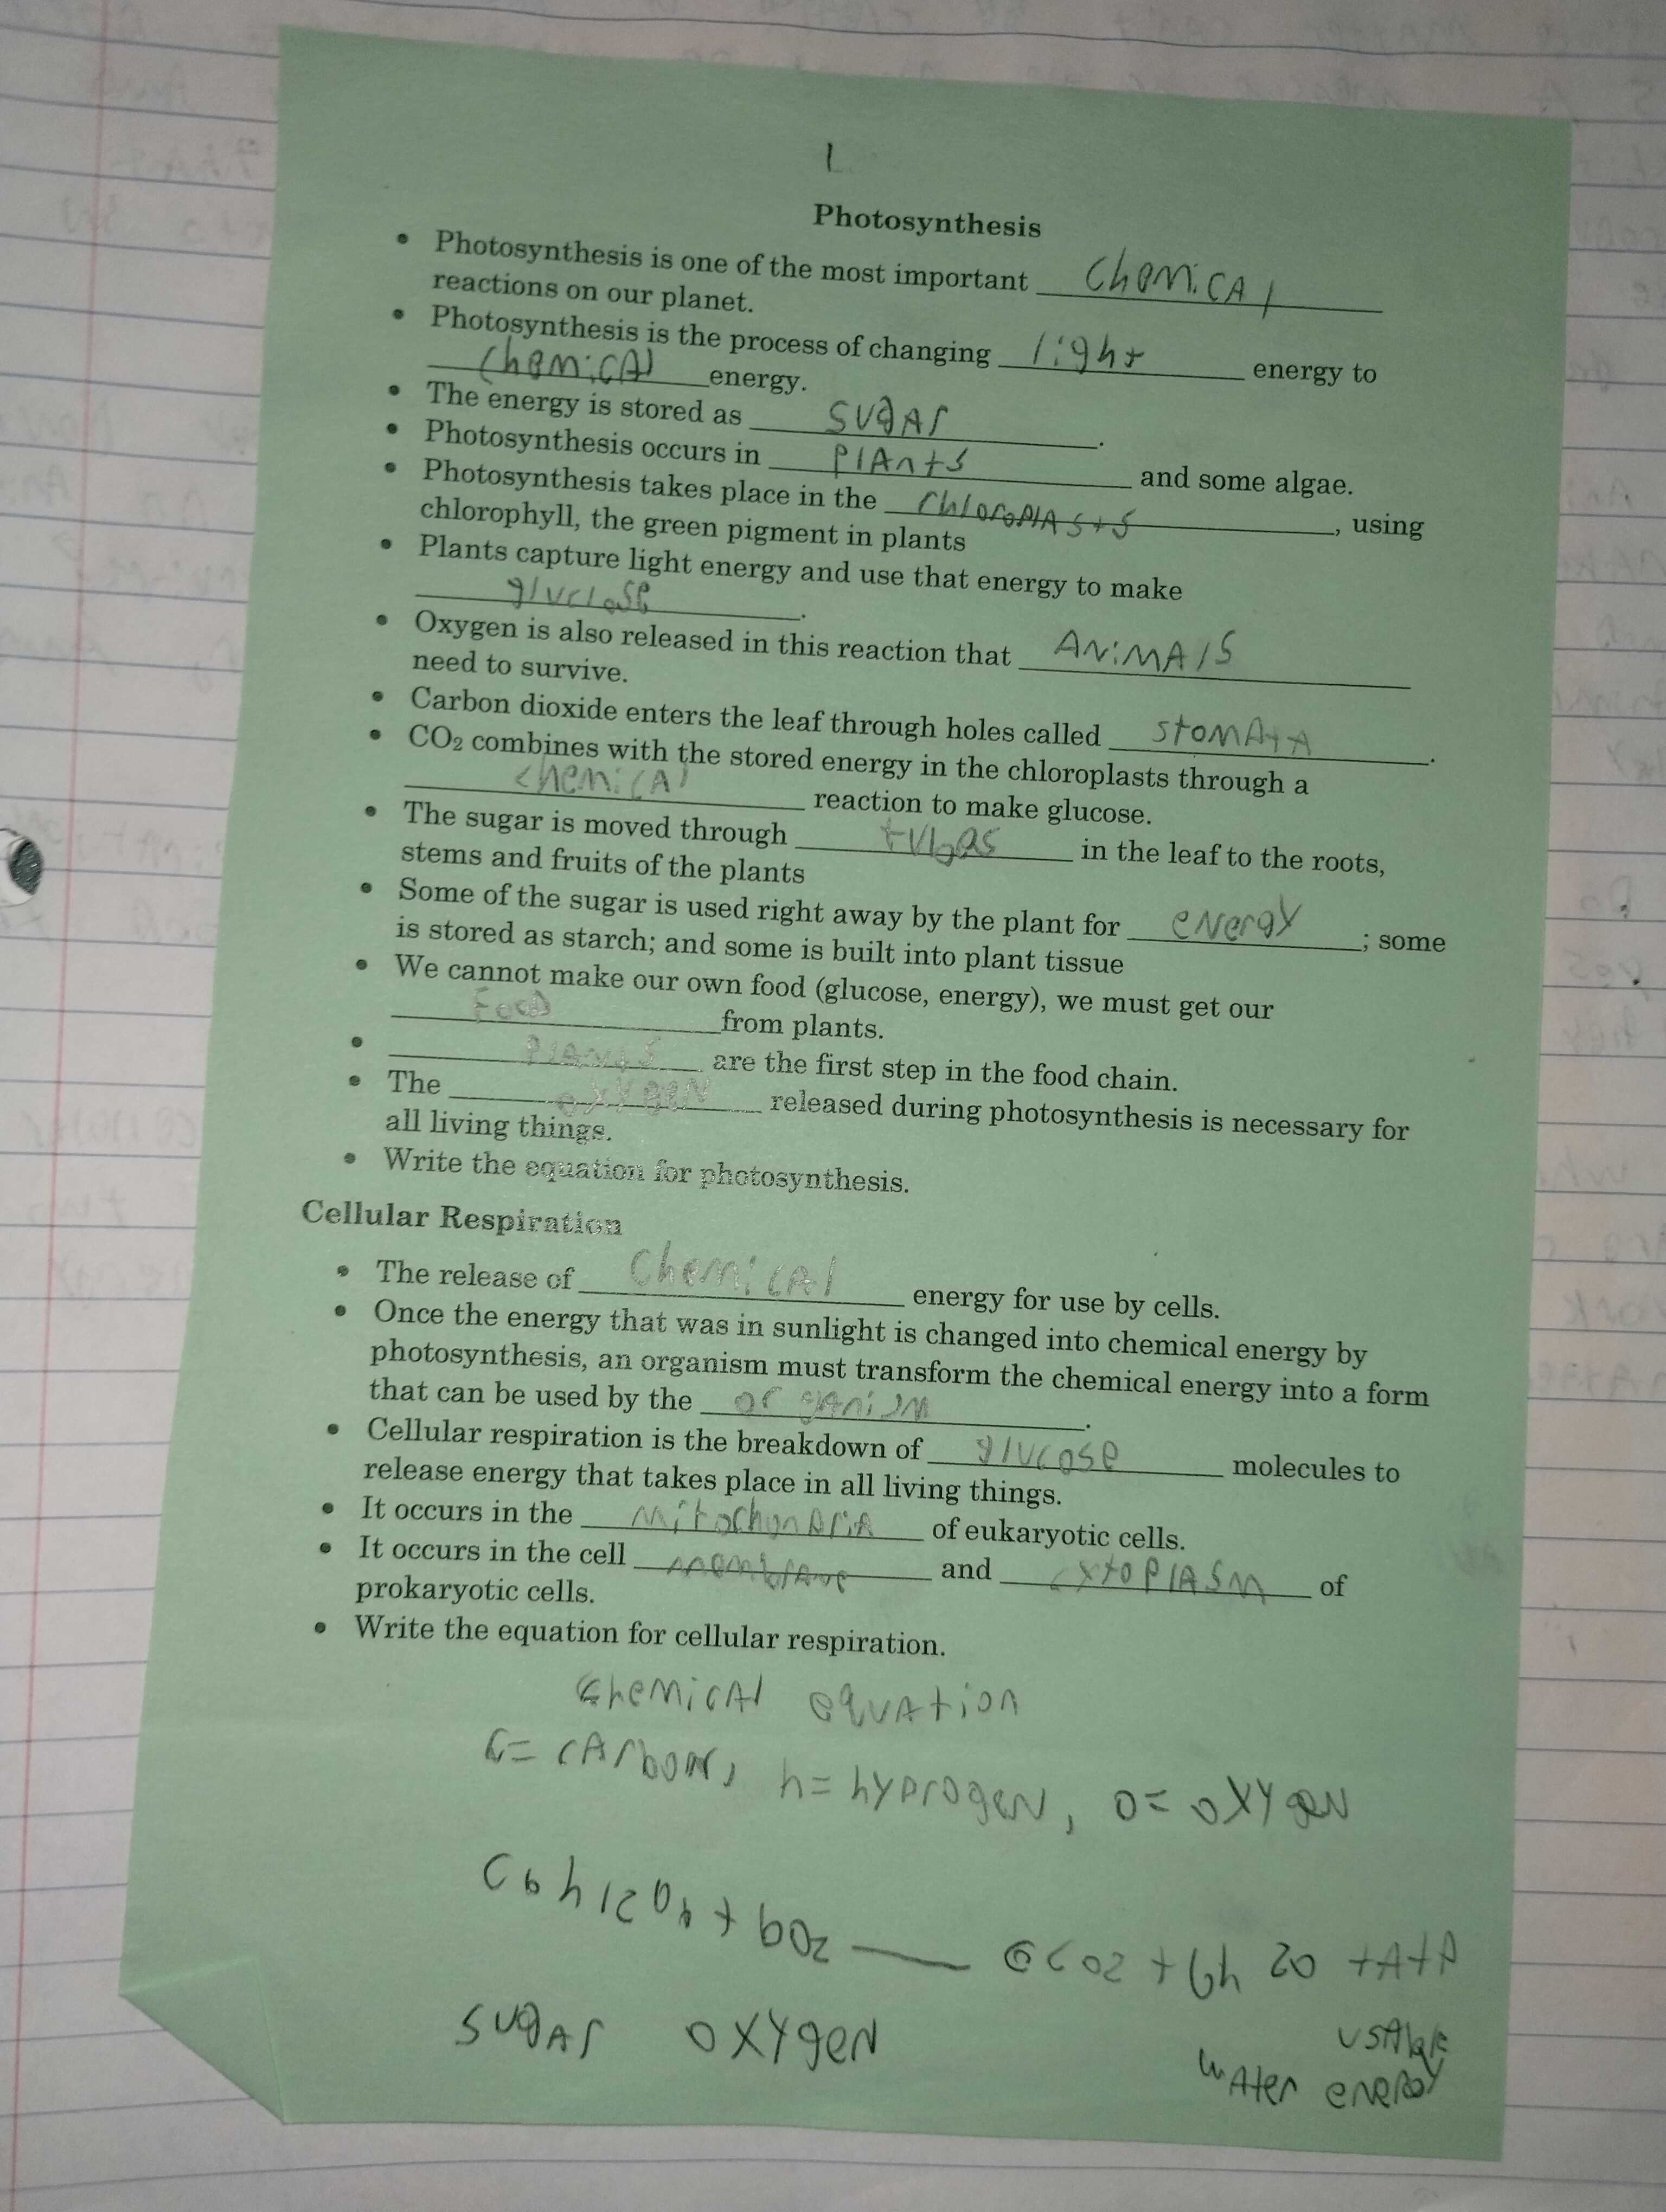 1
Photosynthesis
• Photosynthesis is one of the most important chemical
reactions on our planet.
• Photosynthesis is the process of changing light energy to
chemical energy.
• The energy is stored as sugar.
• Photosynthesis occurs in plants and some algae.
• Photosynthesis takes place in the chloroplasts, using
chlorophyll, the green pigment in plants
• Plants capture light energy and use that energy to make
gluclose.
• Oxygen is also released in this reaction that animals
need to survive.
• Carbon dioxide enters the leaf through holes called stomata.
• CO₂ combines with the stored energy in the chloroplasts through a
chemical reaction to make glucose.
• The sugar is moved through tubes in the leaf to the roots,
stems and fruits of the plants
• Some of the sugar is used right away by the plant for energy; some
is stored as starch; and some is built into plant tissue
• We cannot make our own food (glucose, energy), we must get our
Food from plants.
• plants are the first step in the food chain.
• The oxygen released during photosynthesis is necessary for
all living things.
• Write the equation for photosynthesis.
Cellular Respiration
• The release of chemical energy for use by cells.
• Once the energy that was in sunlight is changed into chemical energy by
photosynthesis, an organism must transform the chemical energy into a form
that can be used by the organism.
• Cellular respiration is the breakdown of glucose molecules to
release energy that takes place in all living things.
• It occurs in the mitochondria of eukaryotic cells.
• It occurs in the cell membrane and cytoplasm of
prokaryotic cells.
• Write the equation for cellular respiration.
chemical equation
C= carbon, h= hydrogen, O= oxygen
sugar oxygen usable
water energy